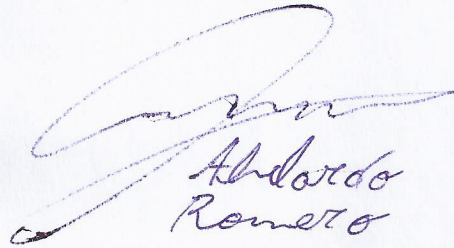 Abelardo
Romero